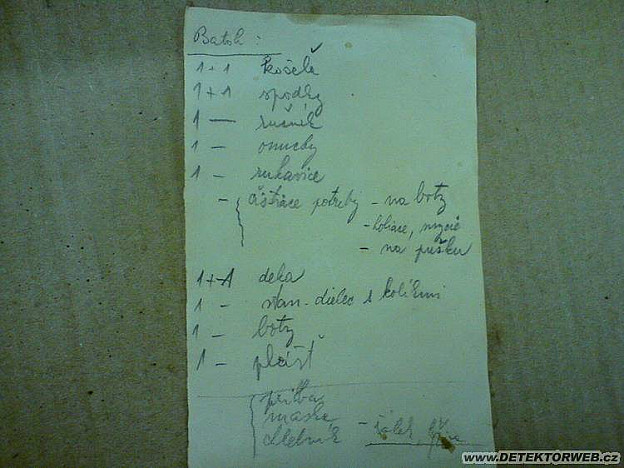 Batoh :
1+1 košeľe
1+1 spodky
1 — ručník
1 - onucky
1 - rukavice
- čistiace potreby - na boty
- holiace, mycie
- na pušku
1+1 deka
1 - stan-dielec s kolíkmi
1 - boty
1 - plášť
prilba
maska
chlebník - šálek,
www.DETEKTORWEB.cz